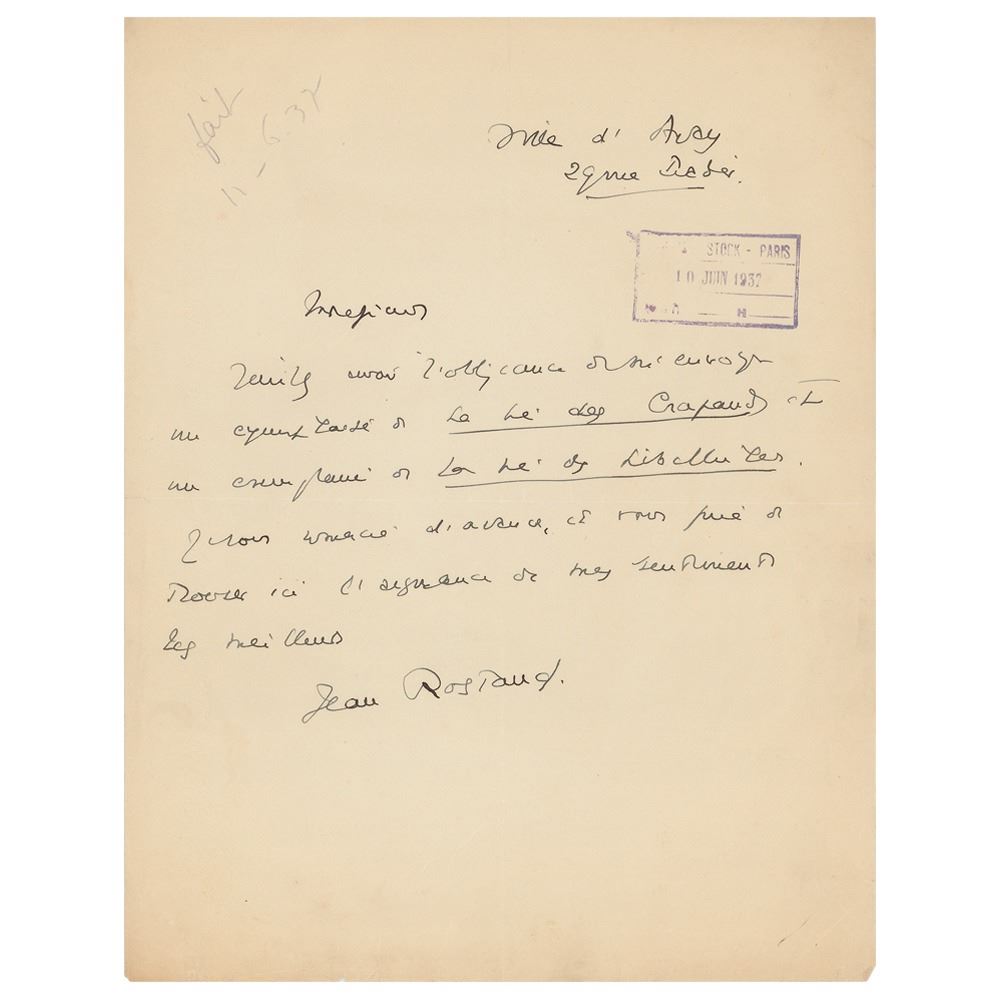 fait
11 - 6. 37
Ville d'Avray
29 rue Pradier.
STOCK - PARIS
10 JUIN 1937
Monsieur
Veuillez avoir l'obligeance de m'envoyer
un exemplaire de La Vie des Crapauds et
un exemplaire de La Vie des Libellules.
Je vous remercie d'avance, et vous prie de
trouver ici l'assurance de mes sentiments
les meilleurs
Jean Rostand.